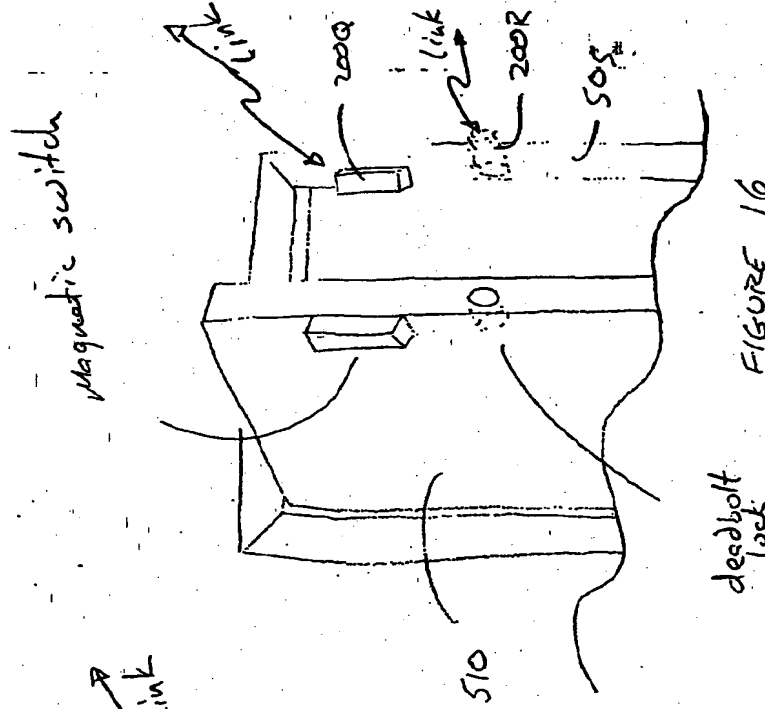 magnetic switch
link
200Q
link
200R
505
510
deadbolt
lock
FIGURE 16